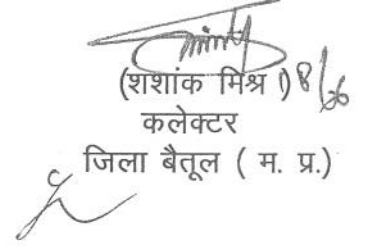 (शशांक मिश्र ।) 8/6
कलेक्टर
जिला बैतूल ( म. प्र.)